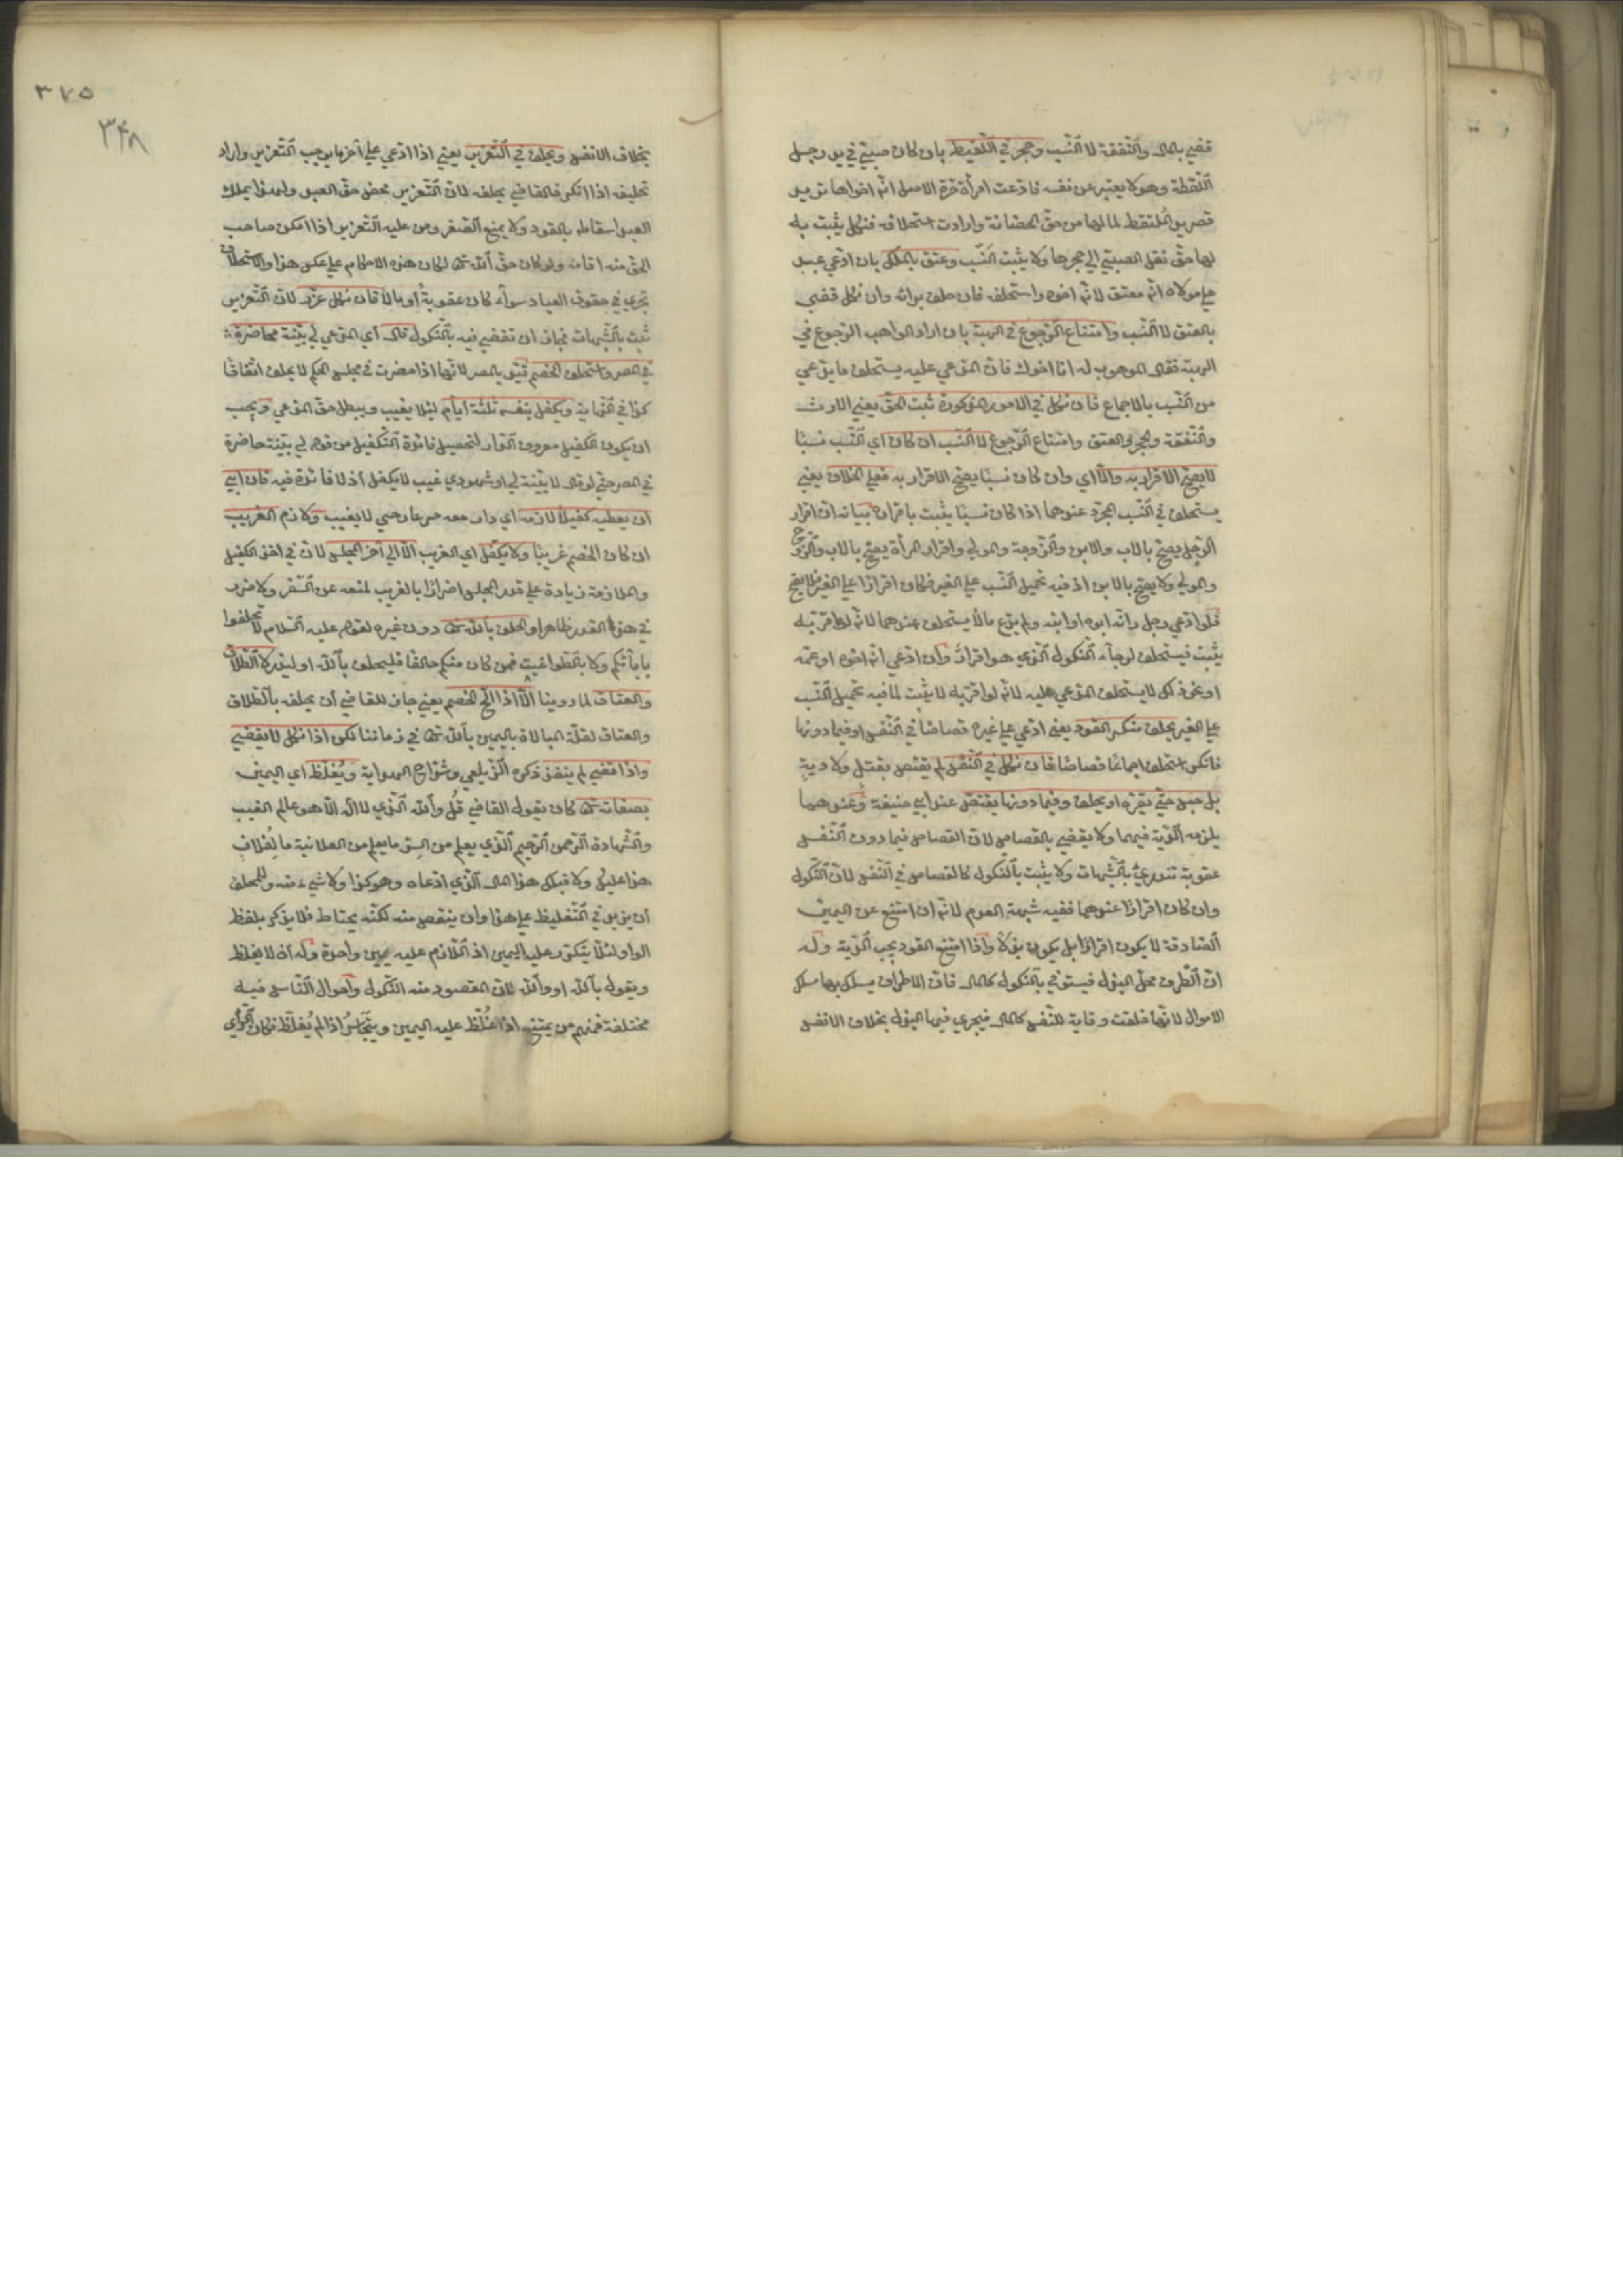 قضي بالمال والنفقة لا النسب وحجر في اللقيط بان كان صبي في يد رجل
التقطه وهو لا يعبر عن نفسه فادعت امرأة حرة الاصل انه اخوها تريد
قصر يد الملتقط لما لها من حق الحضانة وارادت استحلافه فنكل يثبت به
لها حق نقل الصبي الي حجرها ولا يثبت النسب وعتق بالملك بان ادعي عبد
علي مولاه انه معتق لانه اخوه واستحلفه فان حلف برأته وان نكل قضي
بالعتق لا النسب وامتناع الرجوع في الهبة بان اراد الواهب الرجوع في
الهبة فقال الموهوب له انا اخوك فان المدعي عليه يستحلف ما يدعي
من النسب بالاجماع فان نكل في الامور المذكورة ثبت الحق يعني الارث
والنفقة والحجر والعتق وامتناع الرجوع لا النسب ان كان اي النسب نسبا
لا يصح الاقرار به والا اي وان كان نسبا يصح الاقرار به فعلي الخلاف يعني
يستحلف في النسب المجرد عندهما اذا كان نسبا يثبت باقراره بيانه ان اقرار
الرجل يصح بالاب والابن والزوجة والمولي واقرار المرأة يصح بالاب والزوج
والمولي ولا يصح بالابن اذ فيه تحميل النسب علي الغير فكان اقرارا علي الغير فلا يصح
فلو ادعي رجل انه ابوه او ابنه ولم يدع مالا يستحلف عندهما لانه لو اقر به
يثبت فيستحلف لرجاء النكول الذي هو اقرار وان ادعي انه اخوه او عمه
او نحو ذلك لا يستحلف المدعي عليه لانه لو اقر به لا يثبت لما فيه تحميل النسب
علي الغير يحلف منكر القود يعني ادعي علي غيره قصاصا في النفس او فيما دونها
فانكر استحلف اجماعا قصاصا فان نكل في النفس لم يقتص بقتل ولا دية
بل حبس حتي يقر او يحلف وفيما دونها يقتص عند ابي حنيفة وعندهما
يلزمه الدية فيهما ولا يقضي بالقصاص لان القصاص فيما دون النفس
عقوبة تندرئ بالشبهات ولا يثبت بالنكول كالقصاص في النفس لان النكول
وان كان اقرارا عندهما ففيه شبهة العدم لانه ان امتنع عن اليمين
الصادقة لا يكون اقرارا بل يكون بذلا واذا امتنع القود يجب الدية وله
ان الطرف محل البذل فيستوفي بالنكول كالمال فان الاطراف يسلك بها مسلك
الاموال لانها خلقت وقاية للنفس كالمال فيجري فيها البذل بخلاف الانفس
٣٧٥
٣٤٨
بخلاف الانفس ويحلف في التعزير يعني اذا ادعي علي آخر ما يوجب التعزير واراد
تحليفه اذا انكر فالقاضي يحلفه لان التعزير محض حق العبد ولهذا يملك
العبد اسقاطه بالعفو ولا يمنع الصغر ومن عليه التعزير اذا امكن صاحب
الحق منه اقامه ولو كان حق الله تعالي لكان هذه الاحكام علي عكس هذا والاستحلاف
يجري في حقوق العباد سواء كان عقوبة او مالا فان نكل عزر لان التعزير
يثبت بالشبهات فجاز ان يقضي فيه بالنكول قال اي المدعي لي بينة حاضرة
في المصر واستحلف الخصم قيد بالمصر لانها اذا حضرت في مجلس الحكم لا يحلف اتفاقا
كذا في النهاية ويكفل بنفسه ثلثة ايام لئلا يغيب ويبطل حق المدعي ويجب
ان يكون الكفيل معروف الدار لتحصيل فائدة التكفيل من قوله لي بينة حاضرة
في المصر حتي لو قال لا بينة لي او شهودي غيب لا يكفل اذ لا فائدة فيه فان ابي
ان يعطيه كفيلا لازمه اي دار معه حيث دار حتي لا يغيب ولازم الغريب
ان كان الخصم غريبا ولا يكفل اي الغريب الا الي آخر المجلس لان في اخذ الكفيل
والملازمة زيادة علي قدر المجلس اضرارا بالغريب لمنعه عن السفر ولا ضرر
في هذا القدر ظاهرا والحلف بالله تعالي دون غيره لقوله عليه السلام لا تحلفوا
بابآئكم ولا بالطواغيت فمن كان منكم حالفا فليحلف بالله او ليذر لا الطلاق
والعتاق لما روينا الا اذا الح الخصم يعني جاز للقاضي ان يحلفه بالطلاق
والعتاق لقلة المبالاة باليمين بالله تعالي في زماننا لكن اذا نكل لا يقضي
واذا قضي لم ينفذ ذكره الزيلعي وشراح الهداية ويغلظ اي اليمين
بصفاته تعالي كان يقول القاضي قل والله الذي لا اله الا هو عالم الغيب
والشهادة الرحمن الرحيم الذي يعلم من السر ما يعلم من العلانية ما لفلان
هذا عليك ولا قبلك هذا المال الذي ادعاه وهو كذا ولا شيء منه وللمحلف
ان يزيد في التغليظ علي هذا وان ينقص منه لكنه يحتاط فلا يذكر بلفظ
الواو لئلا يتكرر عليه اليمين اذ اللازم عليه يمين واحدة وله ان لا يغلظ
ويقول بالله او والله لان المقصود منه النكول واحوال الناس فيه
مختلفة فمنهم من يمتنع اذا غلظ عليه اليمين ويتجاسر اذا لم يغلظ فكان الرأي